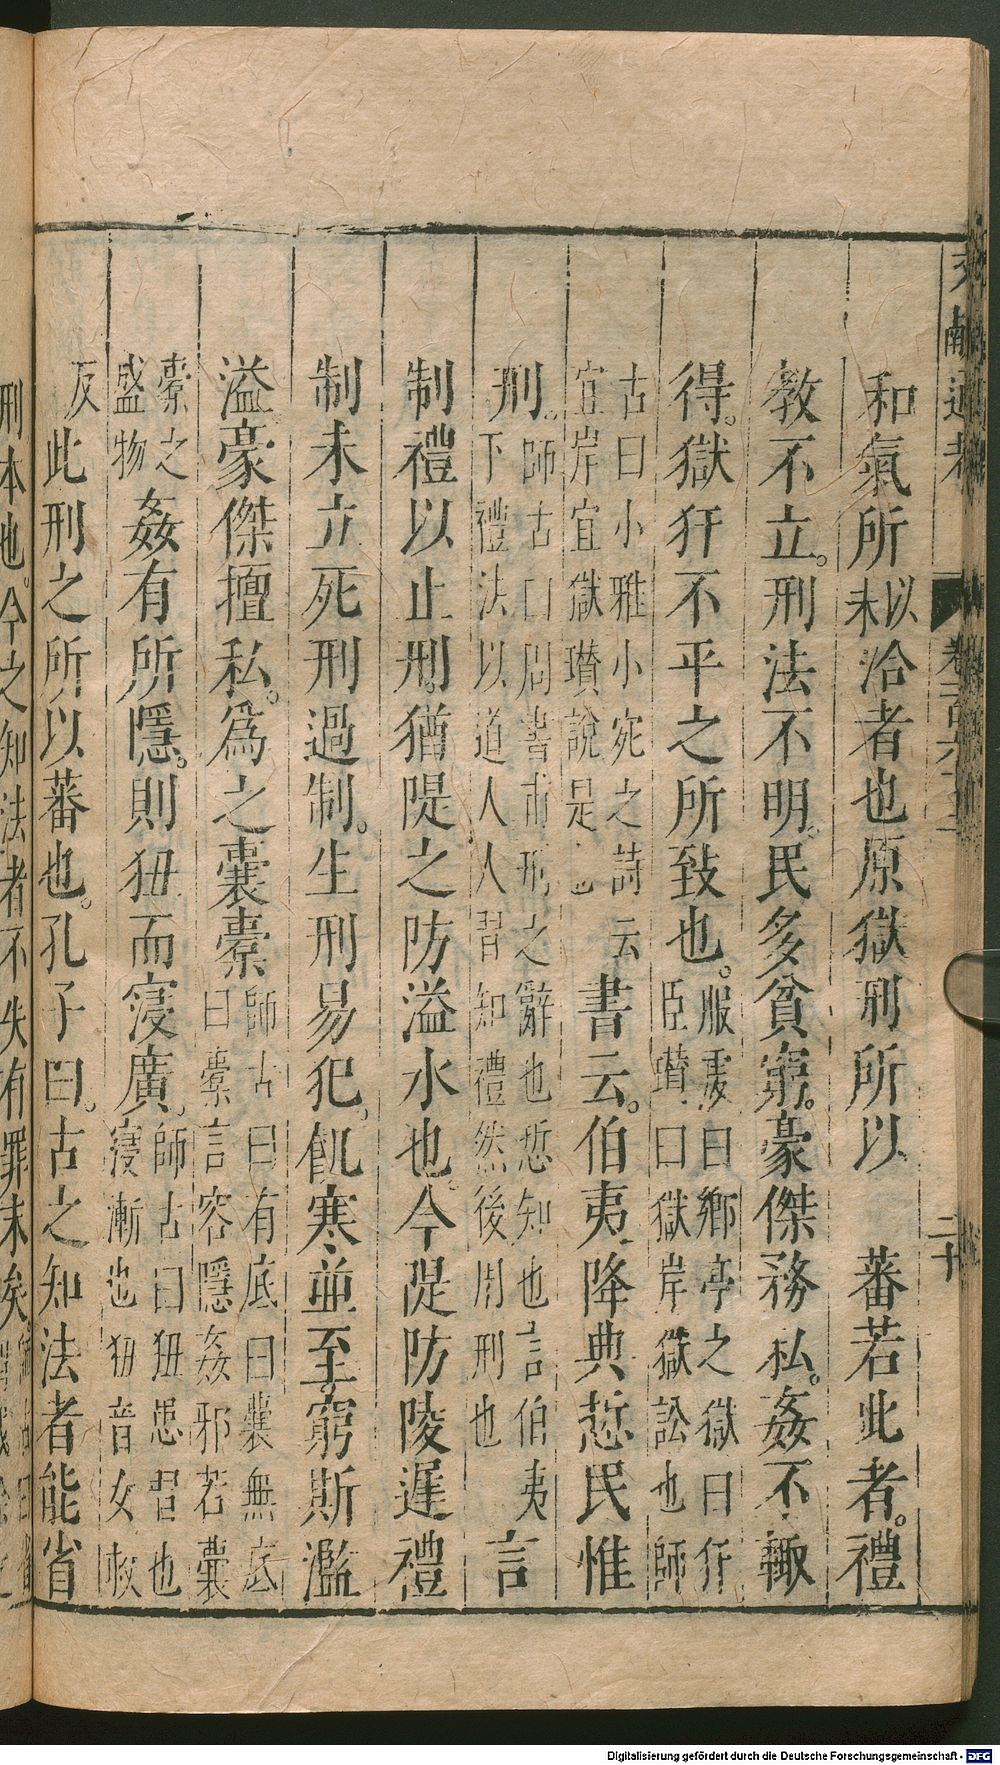 和氣所以未洽者也原獄刑所以蕃若此者。禮
教不立。刑法不明。民多貧窮。豪傑務私。姦不輙
得。獄犴不平之所致也。服虔曰鄉亭之獄曰犴
臣瓚曰獄岸獄訟也師
古曰小雅小宛之詩云
宜岸宜獄瓚說是也
書云。伯夷降典悊民惟
刑。師古曰周書甫刑之辭也悊知也言伯夷
下禮法以道人人習知禮然後用刑也
言
制禮以止刑。猶隄之防溢水也。今隄防陵遲禮
制未立死刑過制。生刑易犯。飢寒並至窮斯濫
溢豪傑擅私。爲之囊橐師古曰有底曰囊無底
曰橐言容隱姦邪若囊
橐之
盛物
姦有所隱。則狃而寖廣。師古曰狃患習也
寖漸也狃音女救
反
此刑之所以蕃也。孔子曰。古之知法者能省
刑本也。今之知法者不失有罪末矣。
文獻通考
二十
Digitalisierung gefördert durch die Deutsche Forschungsgemeinschaft - DFG